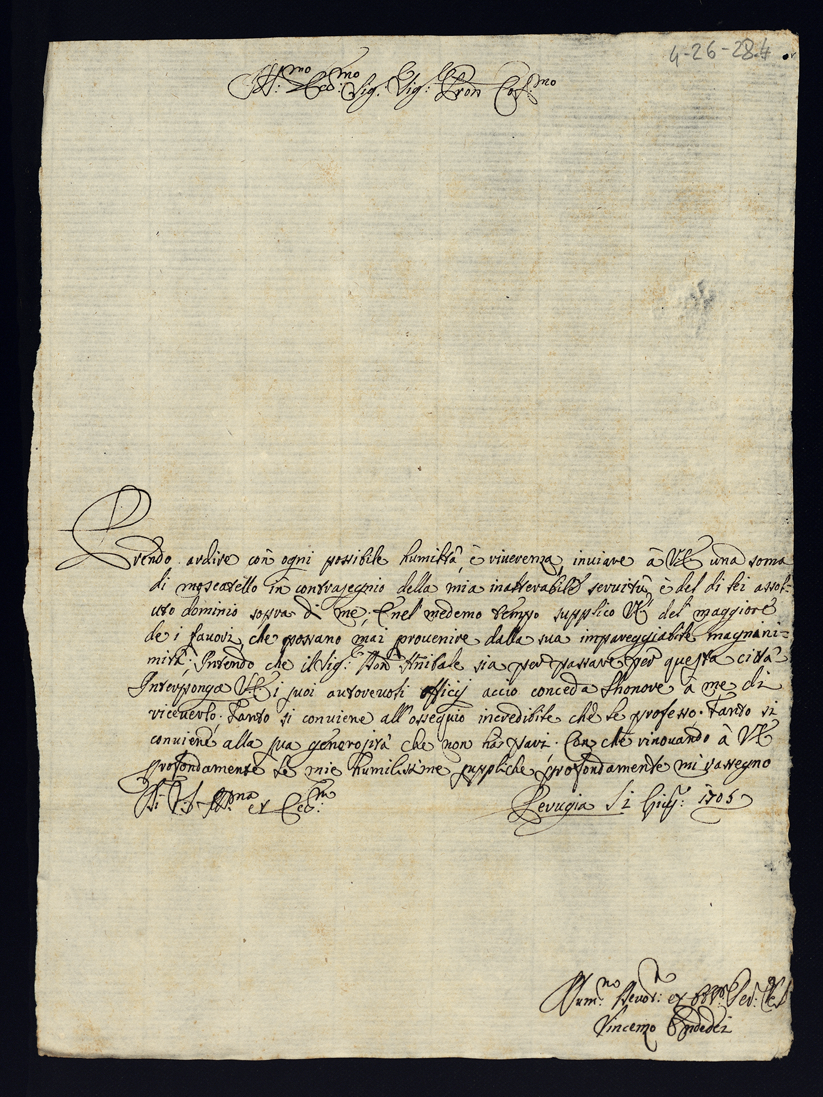 4-26-28.4
Ill:mo Ecc:mo Sig. Sig: Pron Col:mo
Prendo ardire con ogni possibile humiltà è riverenza, inviare à VE una soma
di moscatello in contrasegnio della mia inalterabile servitù, è del di lei assol-
uto dominio sopra di me, E nel medemo tempo supplico VE del maggiore
de i favori, che possano mai provenire dalla sua impareggiabile magnani-
mità; Intendo che il Sig: Annibale sia per passare per questa città
Interponga VE i suoi autorevoli officij acciò conceda l'honore à me di
riceverlo. Tanto si conviene all'ossequio incredibile che le professo. Tanto si
conviene alla sua generosità che non ha pari. Con che rinovando à VE
profondamente le mie humilissime suppliche profondamente mi rassegno
Di V.S. Ill:ma et Ecc:ma
Perugia li 2 Giug: 1705
Hum:mo Devot: et Obb:
Vincenzo Ondedei